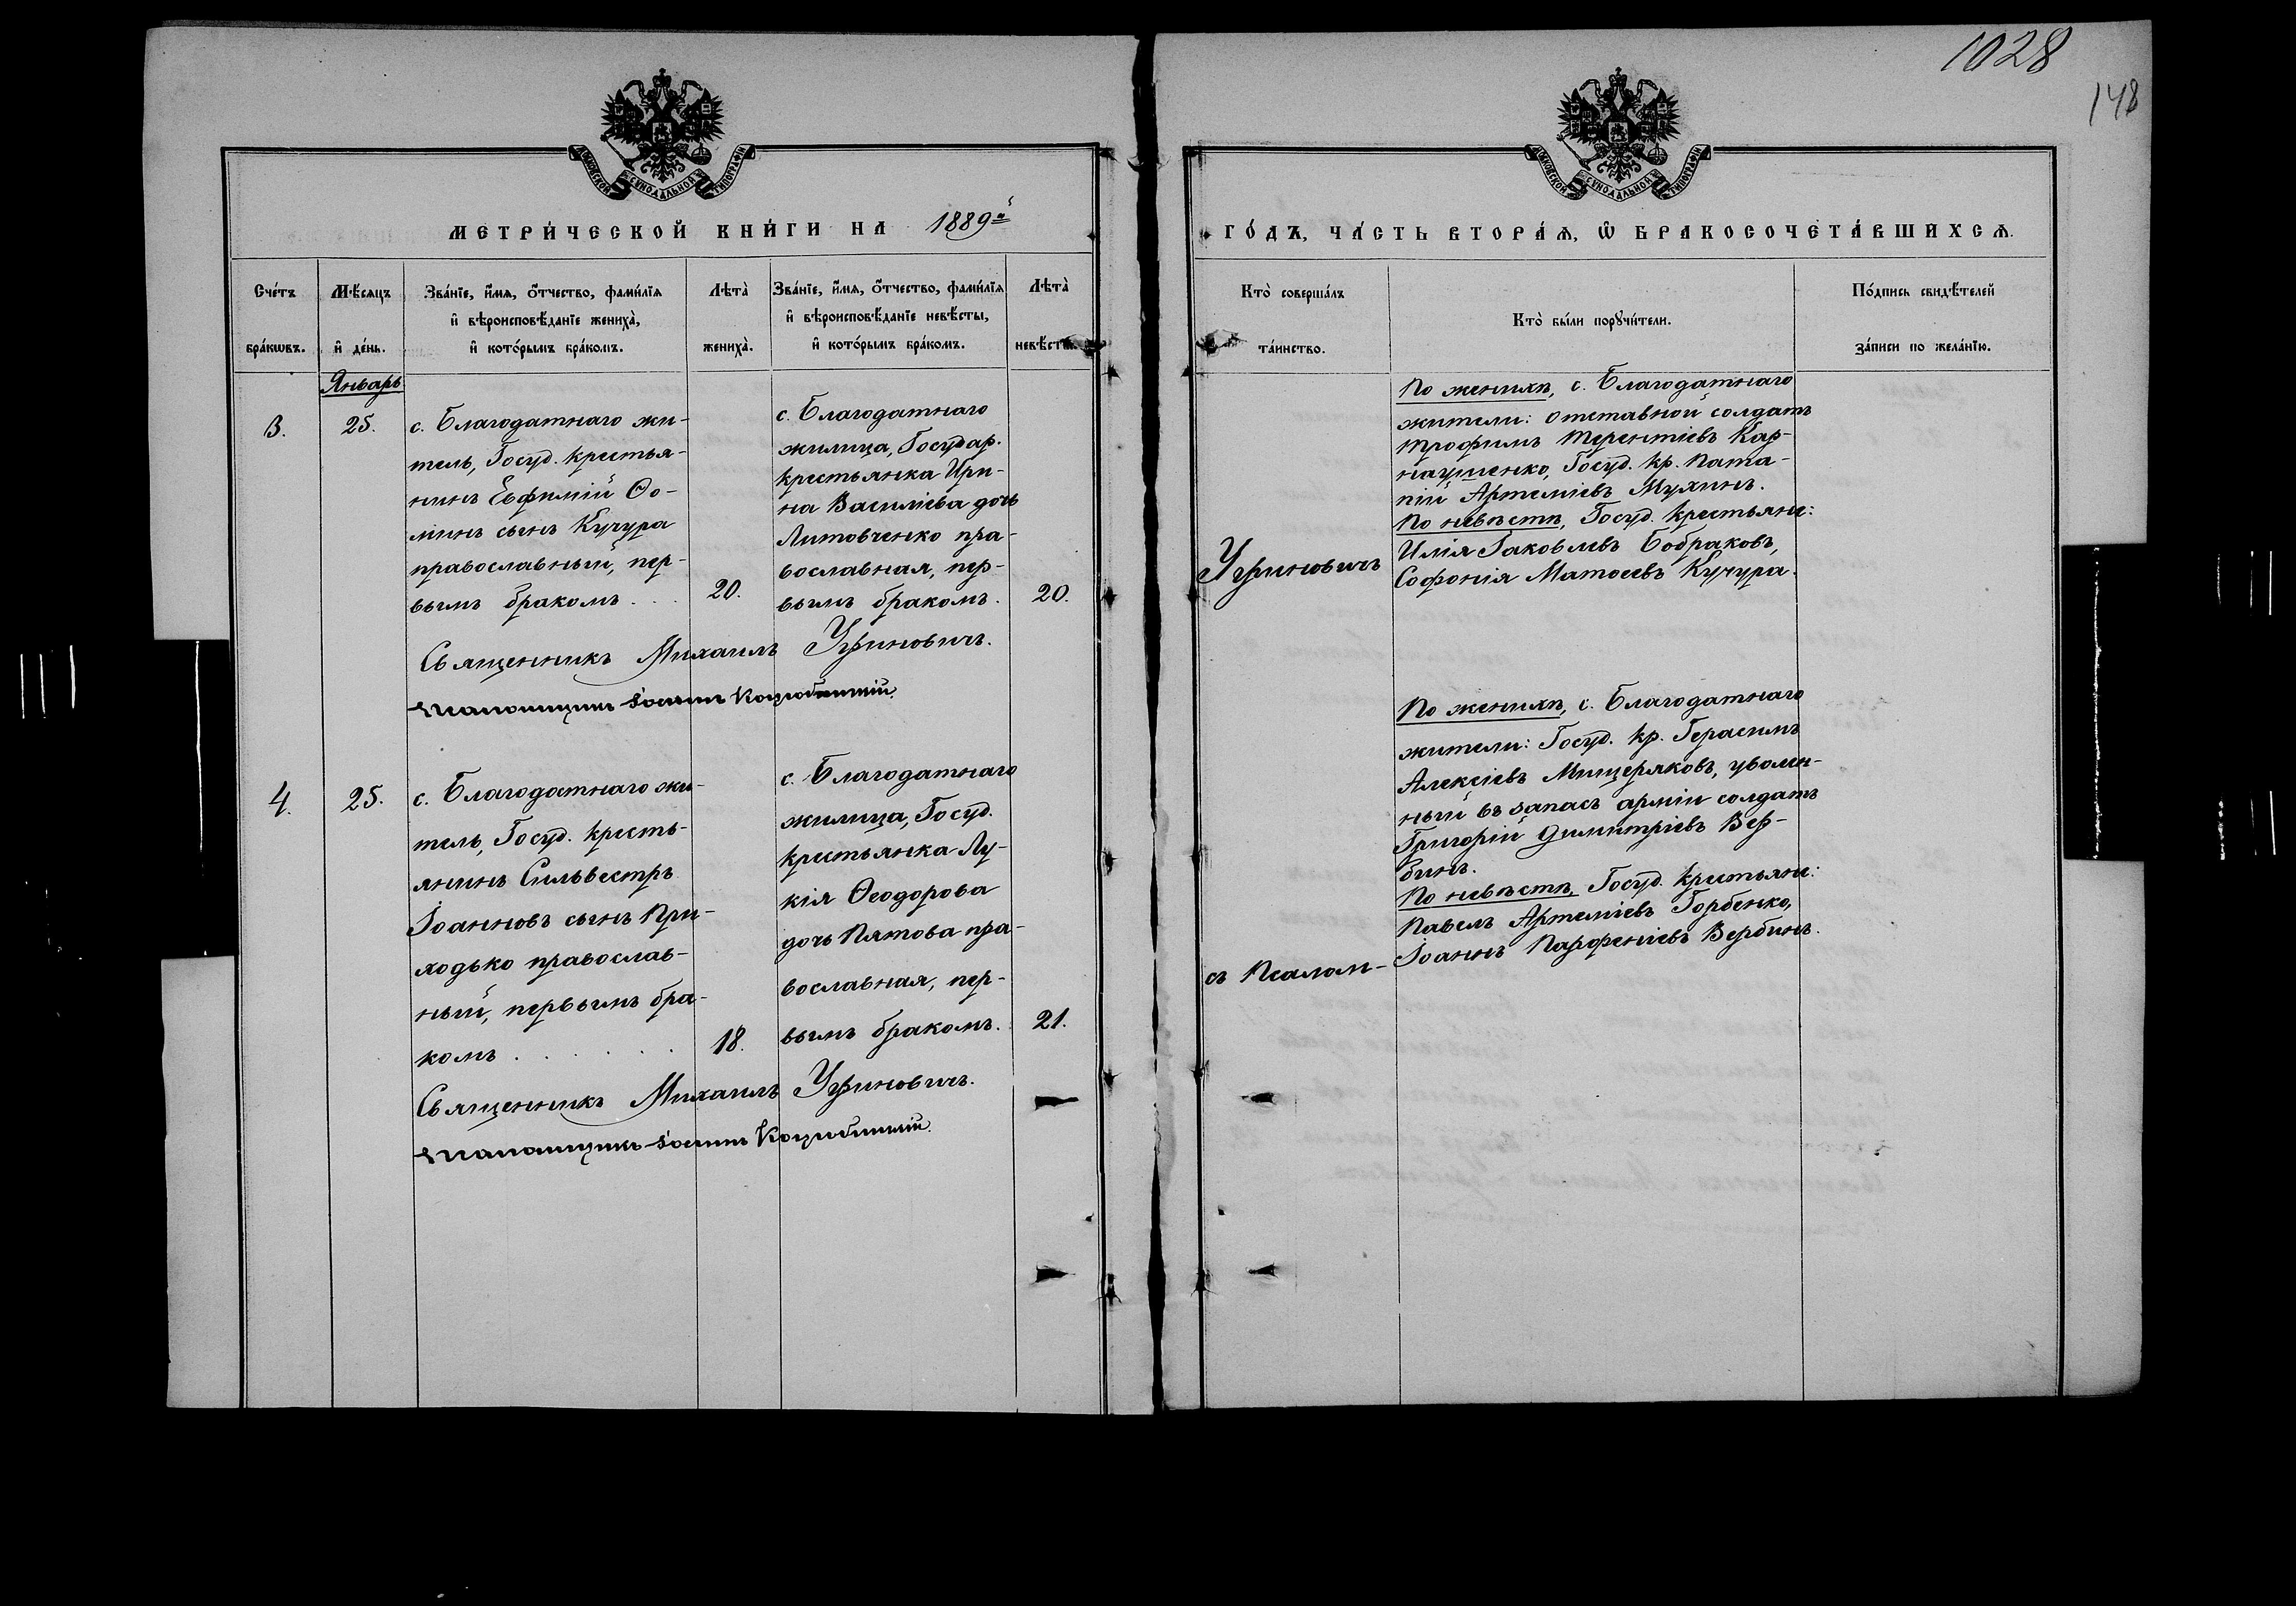 1028
148
МОСКОВСКОЙ СѴНОДАЛЬНОЙ ТИПОГРАФІИ
МОСКОВСКОЙ СѴНОДАЛЬНОЙ ТИПОГРАФІИ
МЕТРИ́ЧЕСКОЙ КНИ́ГИ НА 1889й
ГО́ДЪ, ЧА́СТЬ ВТОРА́Ѧ, Ѽ БРАКОСОЧЕТА́ВШИХСѦ.
Сче́тъ бра́кѡвъ.
Мѣ́сяцъ и҆ де́нь.
Зва́нїе, и҆́мя, ѻ҆́тчество, фами́лїя
и҆ вѣроисповѣ́данїе жениха̀,
и҆ кото́рымъ бра́комъ.
Лѣта̀ жениха̀.
Зва́нїе, и҆́мя, ѻ҆́тчество, фами́лїя
и҆ вѣроисповѣ́данїе невѣ́сты,
и҆ кото́рымъ бра́комъ.
Лѣта̀ невѣ́сты.
Кто̀ соверша́лъ та́инство.
Кто̀ бы́ли порꙋчи́тели.
По́дпись свидѣ́телей
за́писи по жела́нїю.
Январь
3.
25.
с. Благодатнаго жи-
тель, Госуд. крестья-
нинъ Евфимій Ѳо-
минъ сынъ Кучура
православный, пер-
вымъ бракомъ . . .
20.
с. Благодатнаго
жилица, Государ.
крестьянка Ири-
на Василіева дочь
Литовченко пра-
вославная, пер-
вымъ бракомъ.
20.
Угриновичъ
По женихѣ, с. Благодатнаго
жители: отставной солдатъ
Трофимъ Терентіевъ Кар-
наушенко, Госуд. кр. Пата-
пій Артеміевъ Мухинъ.
По невѣстѣ, Госуд. крестьяне:
Илія Іаковлевъ Бобраковъ,
Софонія Матѳеевъ Кучура.
Священникъ Михаилъ Угриновичъ.
Псаломщикъ Іоаннъ Коцюбинскій.
4.
25.
с. Благодатнаго жи-
тель, Госуд. кресть-
янинъ Сильвестръ
Іоанновъ сынъ При-
ходько православ-
ный, первымъ бра-
комъ . . . . . .
18.
с. Благодатнаго
жилица, Госуд.
крестьянка Лу-
кія Ѳеодорова
дочь Пятова пра-
вославная, пер-
вымъ бракомъ.
21.
съ Псалом-
По женихѣ, с. Благодатнаго
жители: Госуд. кр. Герасимъ
Алексіевъ Мищеряковъ, уволен-
ный въ запасъ арміи солдатъ
Григорій Димитріевъ Вер-
бинъ.
По невѣстѣ, Госуд. крестьяне:
Павелъ Артеміевъ Горбенко,
Іоаннъ Парфеніевъ Вербинъ.
Священникъ Михаилъ Угриновичъ.
Псаломщикъ Іоаннъ Коцюбинскій.